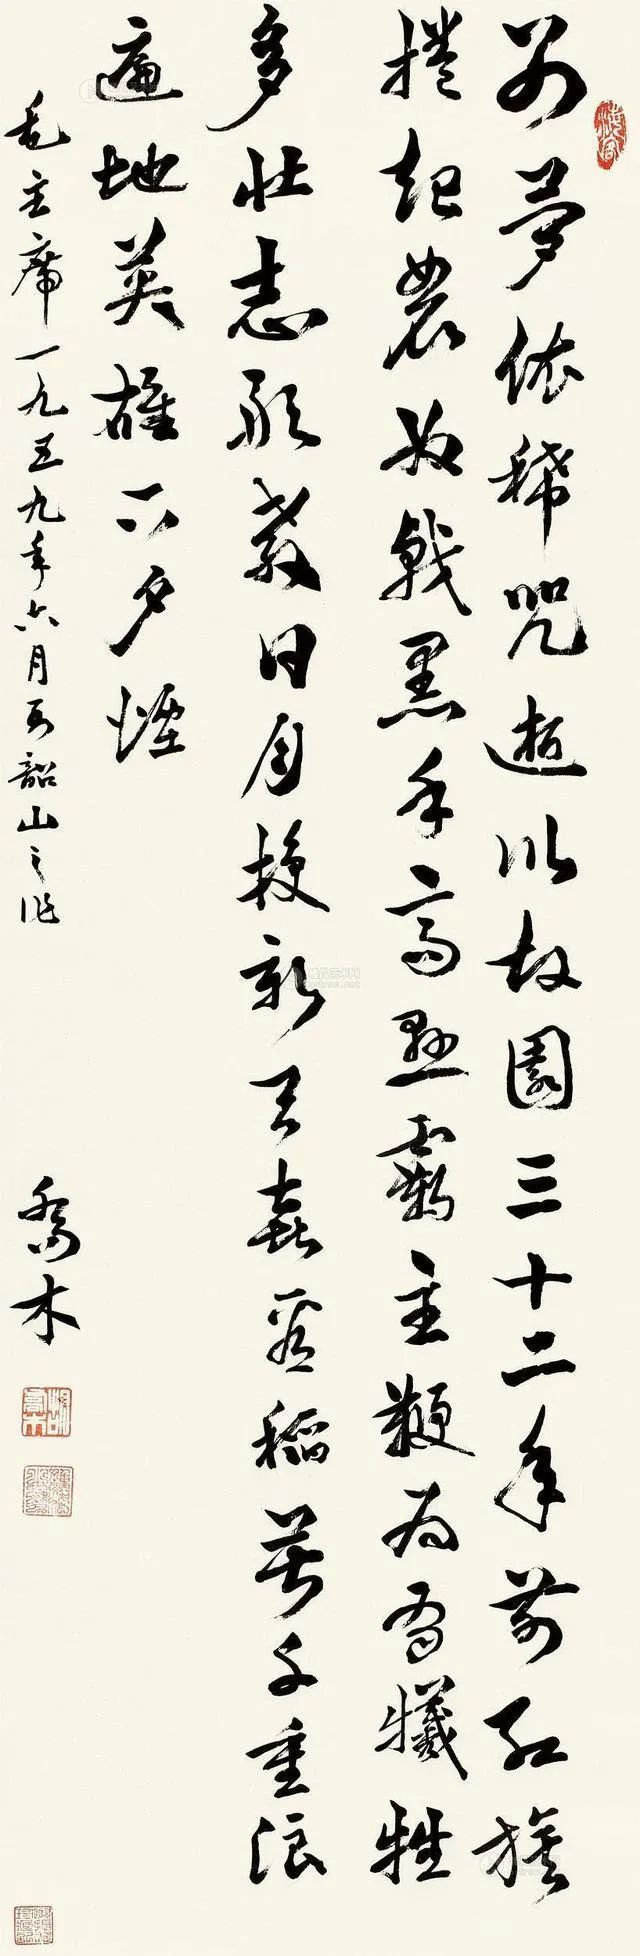 别夢依稀咒逝川故園三十二年前紅旗
捲起農奴戟黑手高懸霸主鞭為有犧牲
多壯志敢教日月換新天喜看稻菽千重浪
遍地英雄下夕煙
毛主席一九五九年六月韶山之作
喬木
胡喬木